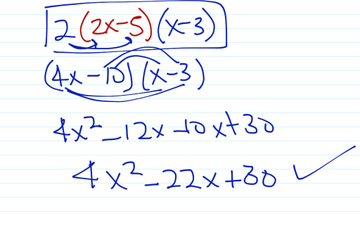 2(2x-5)(x-3)
(4x-10)(x-3)
4x²-12x-10x+30
4x²-22x+30 ✓